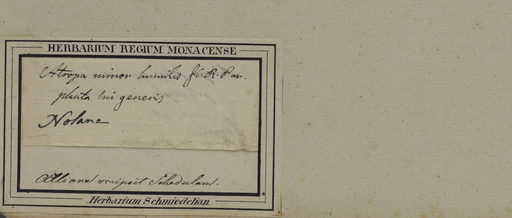 HERBARIUM REGIUM MONACENSE
Atropa minor humilis fl. R. P. an.
planta sui generis
Nolana
Allione scripsit Schedulam.
Herbarium Schmiedelian